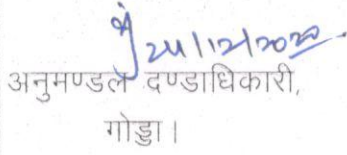 24/12/2020
अनुमण्डल दण्डाधिकारी,
गोड्डा।